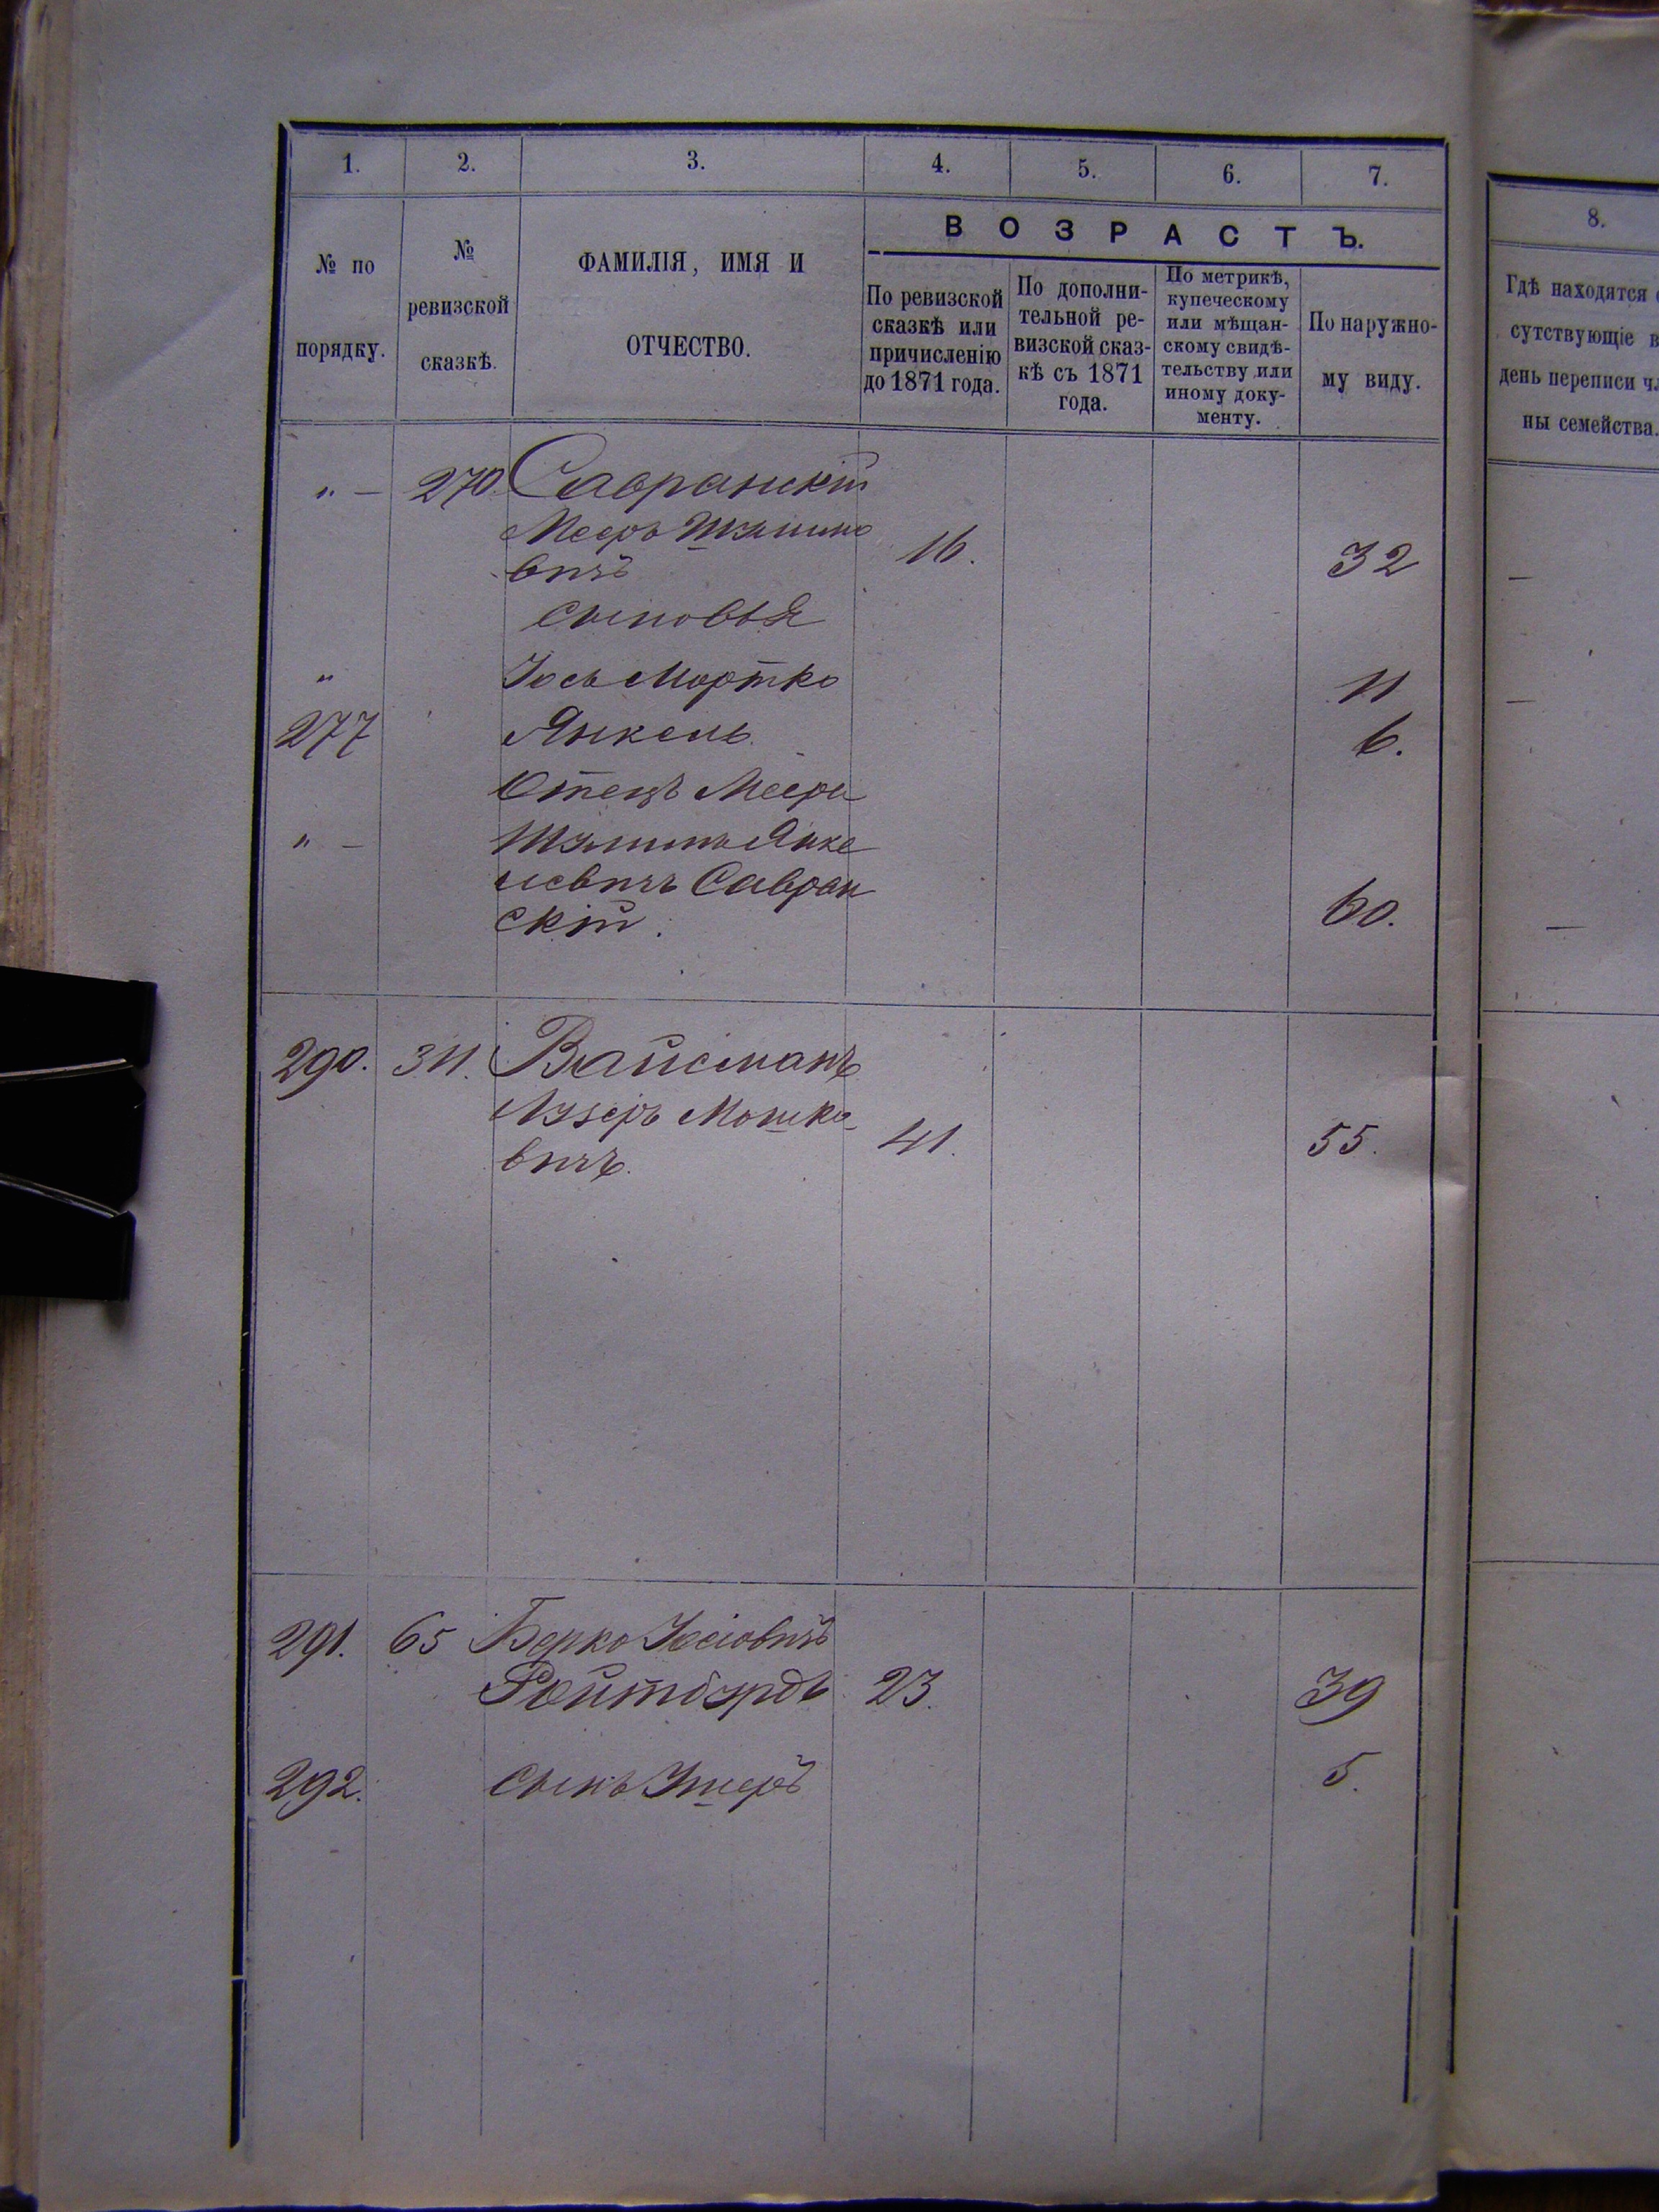 1. 2. 3. 4. 5. 6. 7.
№ по порядку.
№ ревизской сказкѣ.
ФАМИЛІЯ, ИМЯ И ОТЧЕСТВО.
ВОЗРАСТЪ.
По ревизской сказкѣ или причисленію до 1871 года.
По дополни-
тельной ре-
визской сказ-
кѣ съ 1871
года.
По метрикѣ,
купеческому
или мѣщан-
скому свидѣ-
тельству или
иному доку-
менту.
По наружно-
му виду.
„ — 270. Савранскій
Мееръ Шулимо
вичъ 16. 32
Сыновья
„ Іось Мортко 11
277 Янкель 6.
Отецъ Меера
„ — Шулимъ Янке
левичъ Савран
скій. 60.
290. 311. Вайсманъ
Лузеръ Мошко
вичъ. 41. 55.
291. 65 Берко Іосіовичъ
Ройтбурдъ 23. 39
292. Сынъ Ушеръ 5.
8.
Гдѣ находятся
сутствующіе
день переписи
ны семейства.